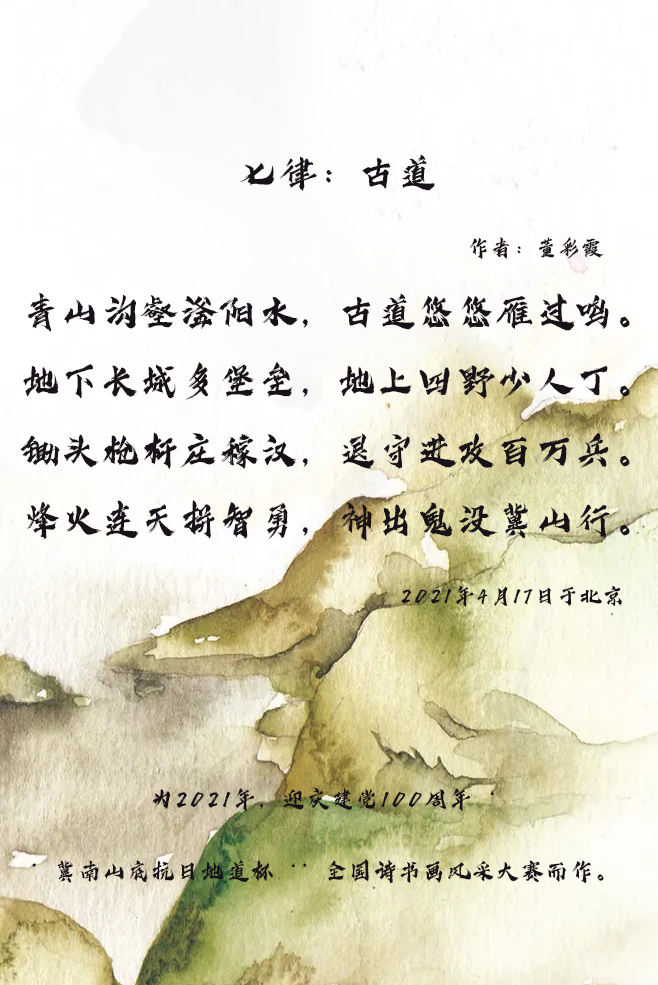 七律：古道
作者：董彩霞
青山沟壑滏阳水，古道悠悠雁过鸣。
地下长城多堡垒，地上四野少人丁。
锄头枪杆庄稼汉，退守进攻百万兵。
烽火连天拼智勇，神出鬼没冀山行。
2021年4月17日于北京
为2021年，迎庆建党100周年‘
‘ 冀南山底抗日地道杯 ’’ 全国诗书画风采大赛而作。